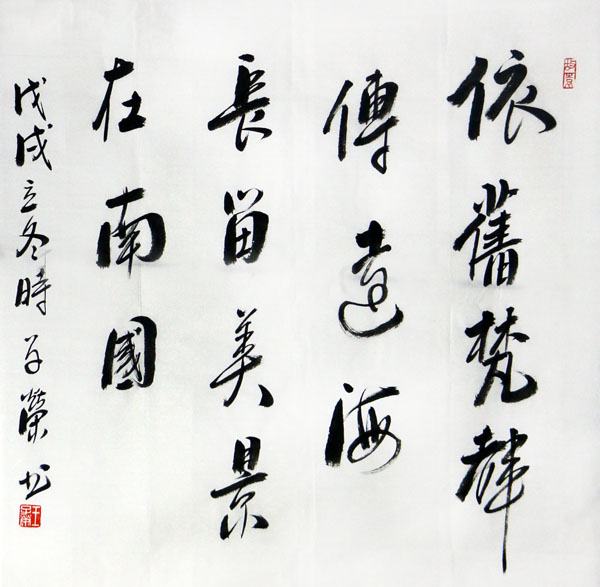 依舊梵聲
傳遠海
長留美景
在南國
戊戌立冬時子榮书